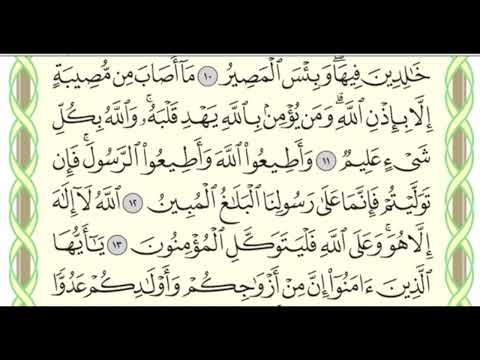 خَٰلِدِينَ فِيهَاۖ وَبِئْسَ ٱلْمَصِيرُ ١٠ مَآ أَصَابَ مِن مُّصِيبَةٍ
إِلَّا بِإِذْنِ ٱللَّهِۗ وَمَن يُؤْمِنۢ بِٱللَّهِ يَهْدِ قَلْبَهُۥۚ وَٱللَّهُ بِكُلِّ
شَىْءٍ عَلِيمٌ ١١ وَأَطِيعُوا۟ ٱللَّهَ وَأَطِيعُوا۟ ٱلرَّسُولَۚ فَإِن
تَوَلَّيْتُمْ فَإِنَّمَا عَلَىٰ رَسُولِنَا ٱلْبَلَٰغُ ٱلْمُبِينُ ١٢ ٱللَّهُ لَآ إِلَٰهَ
إِلَّا هُوَۚ وَعَلَى ٱللَّهِ فَلْيَتَوَكَّلِ ٱلْمُؤْمِنُونَ ١٣ يَٰٓأَيُّهَا
ٱلَّذِينَ ءَامَنُوٓا۟ إِنَّ مِنْ أَزْوَٰجِكُمْ وَأَوْلَٰدِكُمْ عَدُوًّا